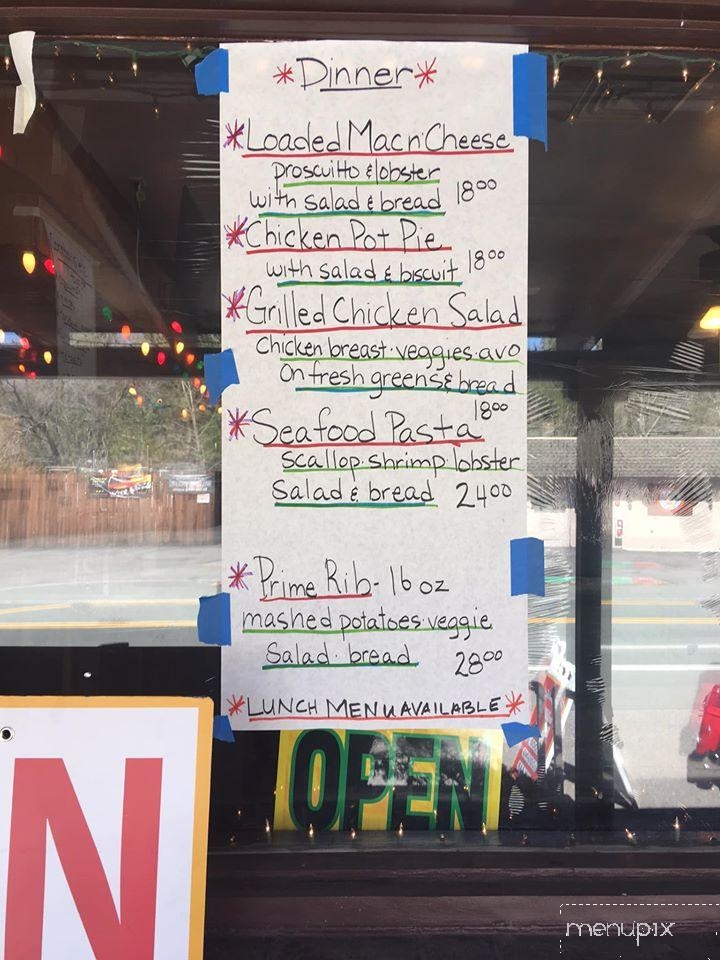 *Dinner*
*Loaded Mac n' Cheese
proscuitto & lobster
with salad & bread 18⁰⁰
*Chicken Pot Pie
with salad & biscuit 18⁰⁰
*Grilled Chicken Salad
Chicken breast veggies. avo
On fresh greens & bread
18⁰⁰
*Seafood Pasta
scallop. shrimp lobster
Salad & bread 24⁰⁰
*Prime Rib - 16 oz
mashed potatoes veggie
Salad. bread 28⁰⁰
*LUNCH MENU AVAILABLE*
OPEN
N
menupix